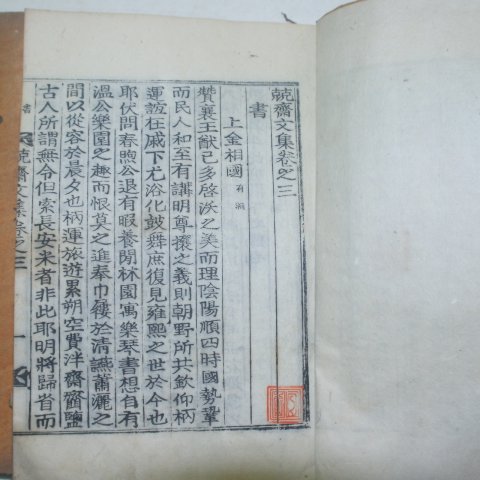 兢齋文集卷之三
書
上金相國
贊襄王猷已多啓沃之美而理陰陽順四時國勢鞏
而民人和至有講明尊攘之義則朝野所共欽仰柄
運誼在戚下尤浴化鼓舞庶復見雍熙之世於今也
耶伏問春煦公退有暇養閒林園寓樂琴書想自有
溫公樂園之趣而恨莫之進奏巾䙝於清讌蕭灑之
間以從容於晨夕也柄運旅遊累朔空費泮齋虀鹽
古人所謂無令但索長安米者非此耶明將歸省而
兢齋文集卷之三
一